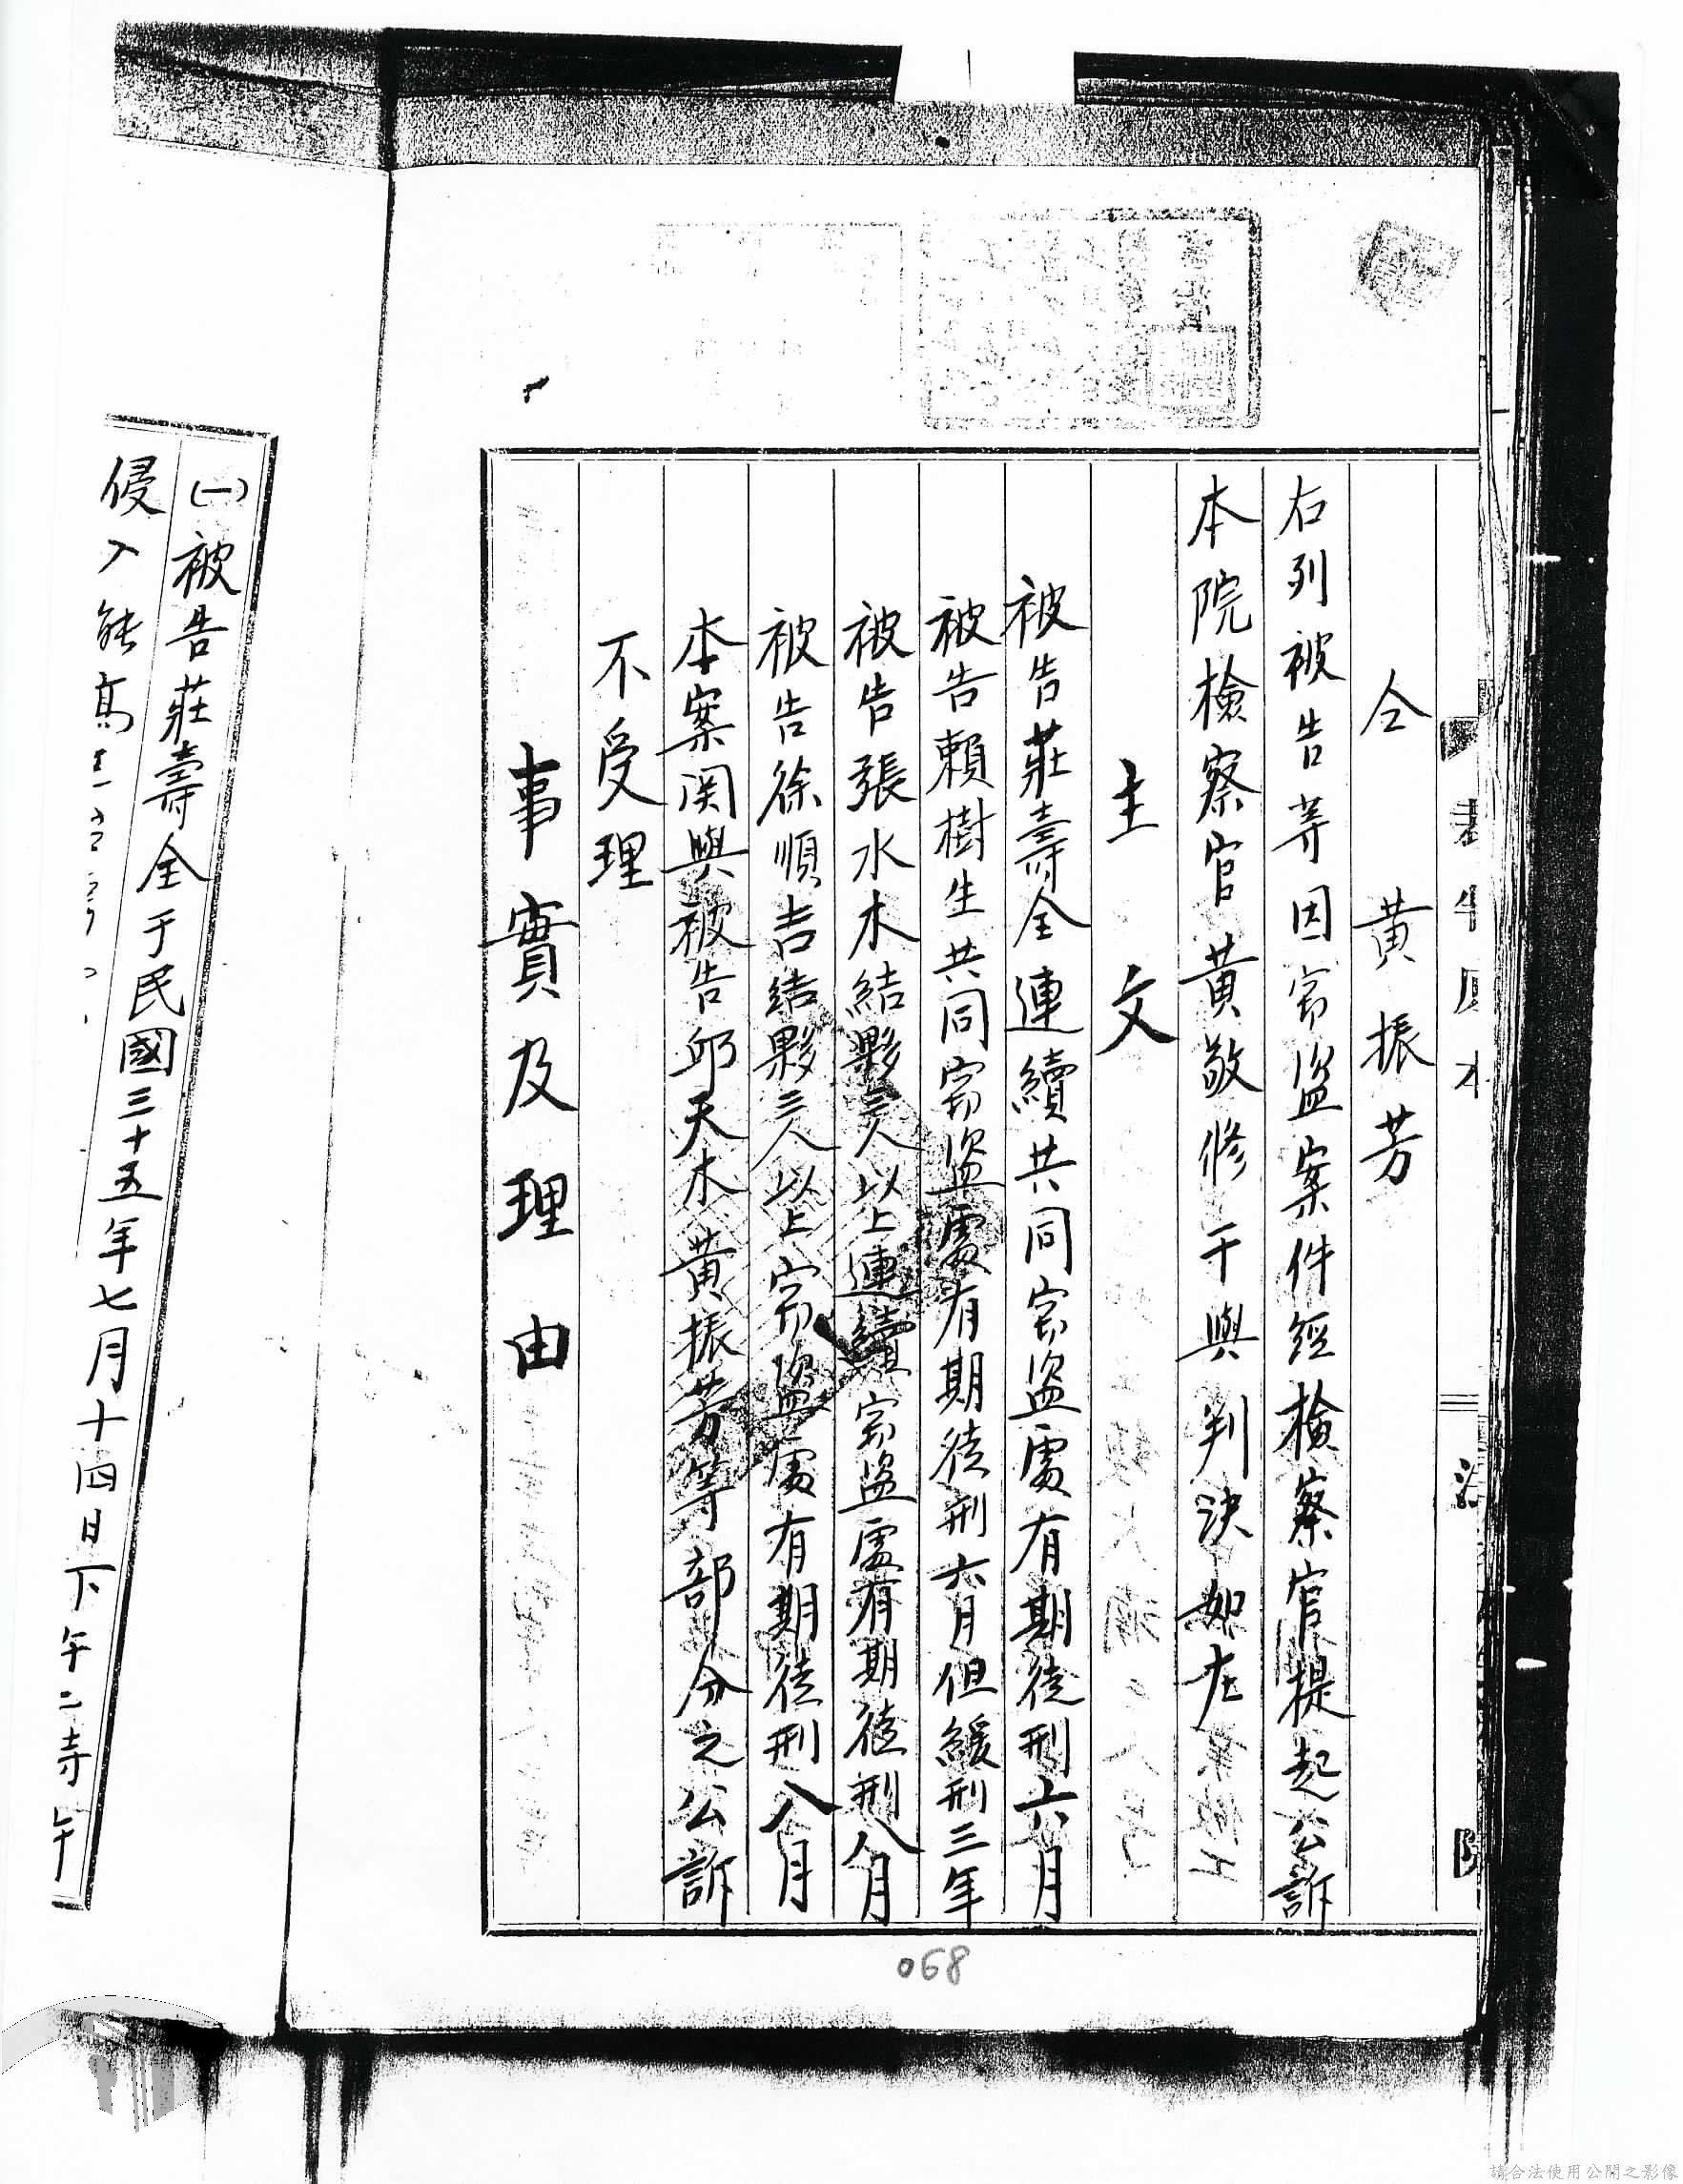 仝 黄振芳
右列被告等因窃盗案件經檢察官提起公訴
本院檢察官黄敬修干與判決如左
主文
被告莊壽全連續共同窃盗處有期徒刑六月
被告賴樹生共同窃盗處有期徒刑六月但緩刑三年
被告張水木結夥三人以上連續窃盗處有期徒刑八月
被告徐順吉結夥三人以上窃盗處有期徒刑八月
本案関與被告邱天木黄振芳等部分之公訴
不受理
事實及理由
(一)被告莊壽全于民國三十五年七月十四日下午二
侵入
068
請合法使用公開之影像